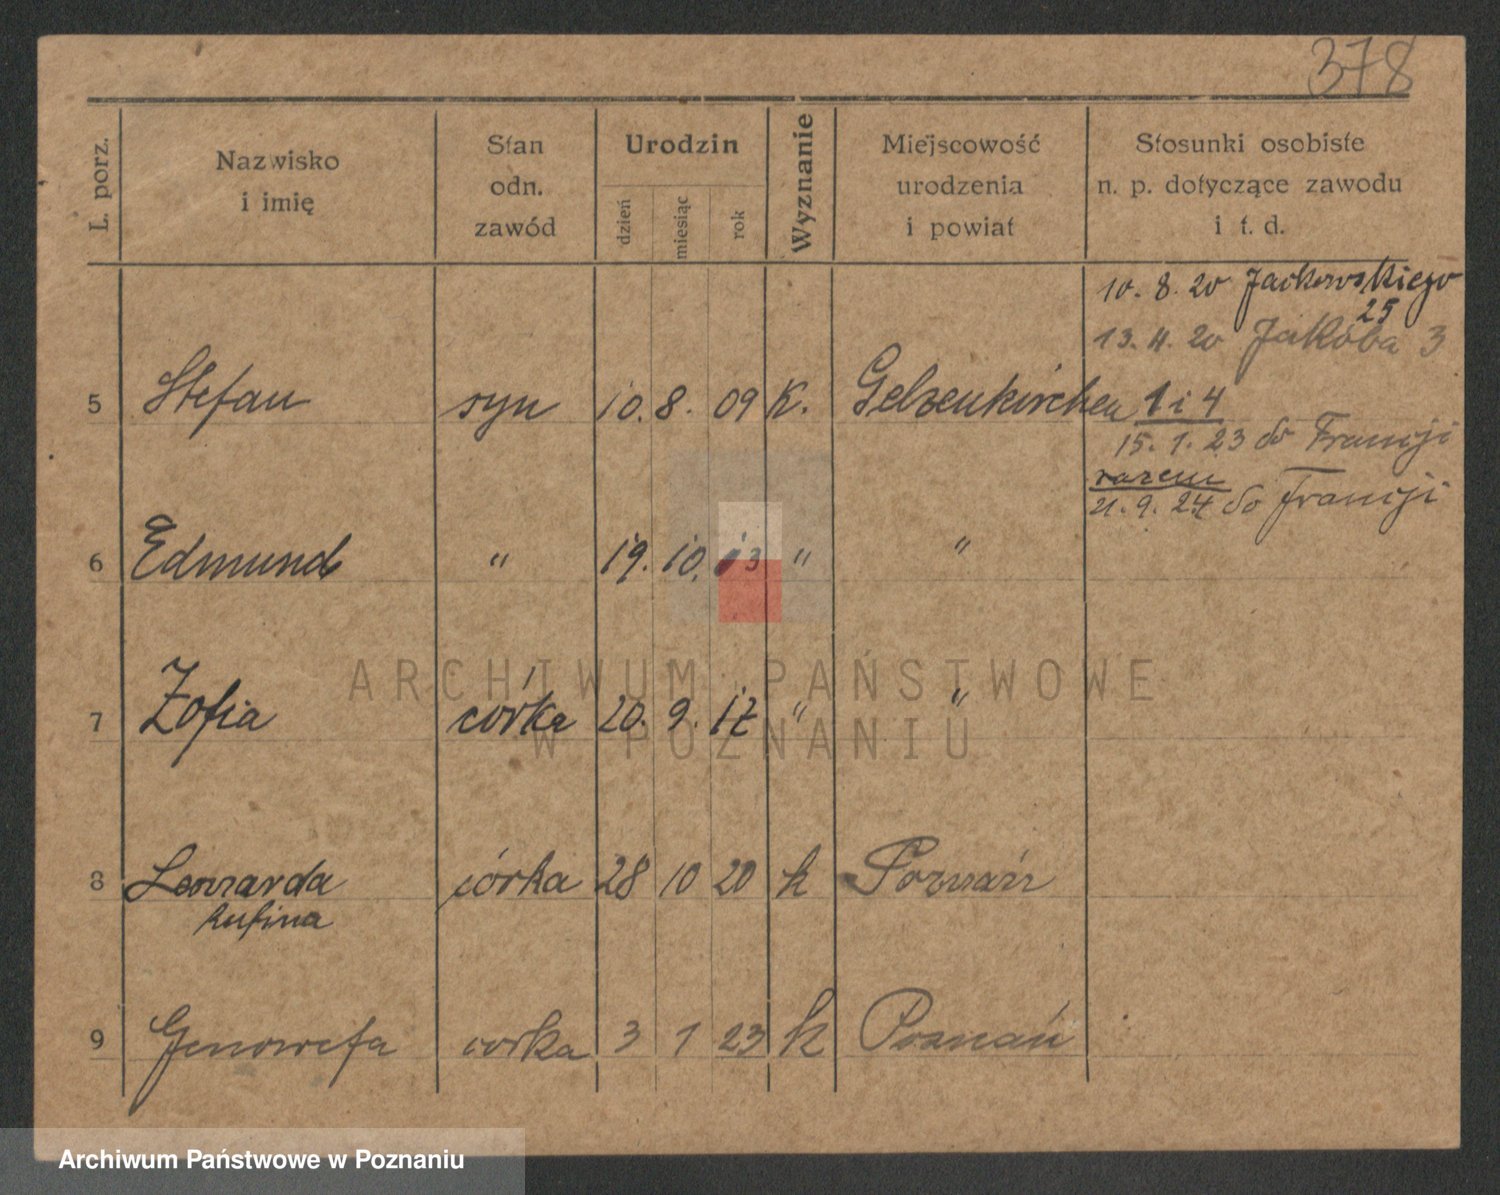 378
L. porz.
Nazwisko
i imię
Stan
odn.
zawód
Urodzin
dzień
miesiąc
rok
Wyznanie
Miejscowość
urodzenia
i powiat
Stosunki osobiste
n. p. dotyczące zawodu
i t. d.
10. 8. 20 Jackowskiego
25
13. 4. 20 Jakóba 3
5 Stefan syn 10. 8. 09 K. Gelsenkirchen 1 i 4
15. 1. 23 do Francji
razem
21. 9. 24 do Francji
6 Edmund " 19. 10. 13 " "
7 Zofia córka 20. 9. 17 " "
8 Leonarda córka 28 10 20 k Poznań
Rufina
9 Genowefa corka 3 1 23 k Poznań
ARCHIWUM PAŃSTWOWE
W POZNANIU
Archiwum Państwowe w Poznaniu